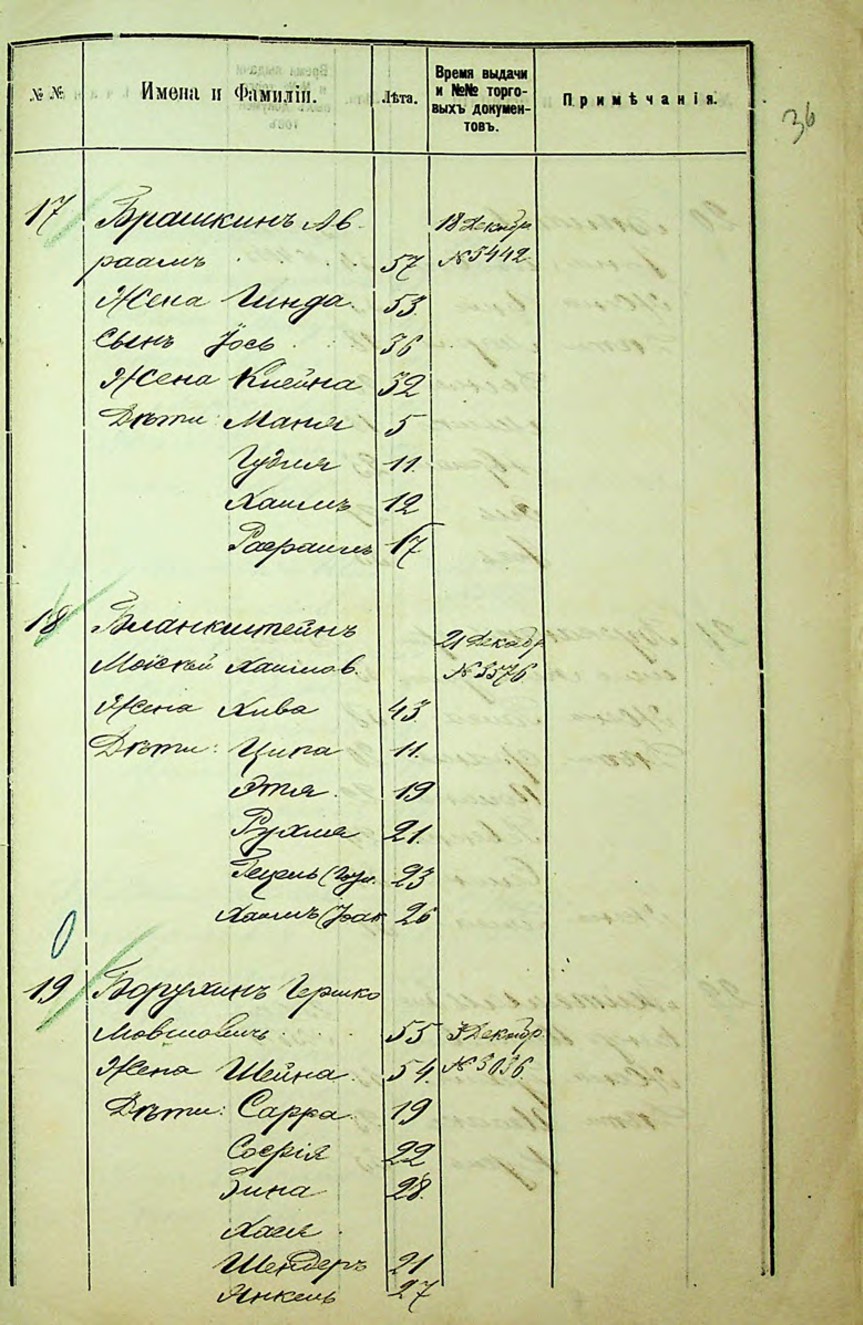 № № Имена и Фамиліи. Лѣта. Время выдачи и №№ торговыхъ документовъ. Примѣчанія.
36
17 Брашкинъ Ав- 18 Декабр
раамъ 57 № 5442
Жена Гинда. 53
Сынъ Іось 36
Жена Клейна 32
Дѣти: Маня 5
Гудля 11.
Хаимъ 12
Рафаилъ 17
18 Бланкштейнъ 21 Декабр
Мойсей Хаимов. № 3576
Жена Хива 43
Дѣти: Ципа 11.
Этя. 19
Рухля 21.
Гецель 23
Хаимъ 26
19 Борухинъ Гершко
Мовшовичъ 55 3 Декабр.
Жена Шейна 54. № 3036.
Дѣти: Сарра 19
Софія 22
Зина 28.
Хася
Шендеръ 21
Янкель 27